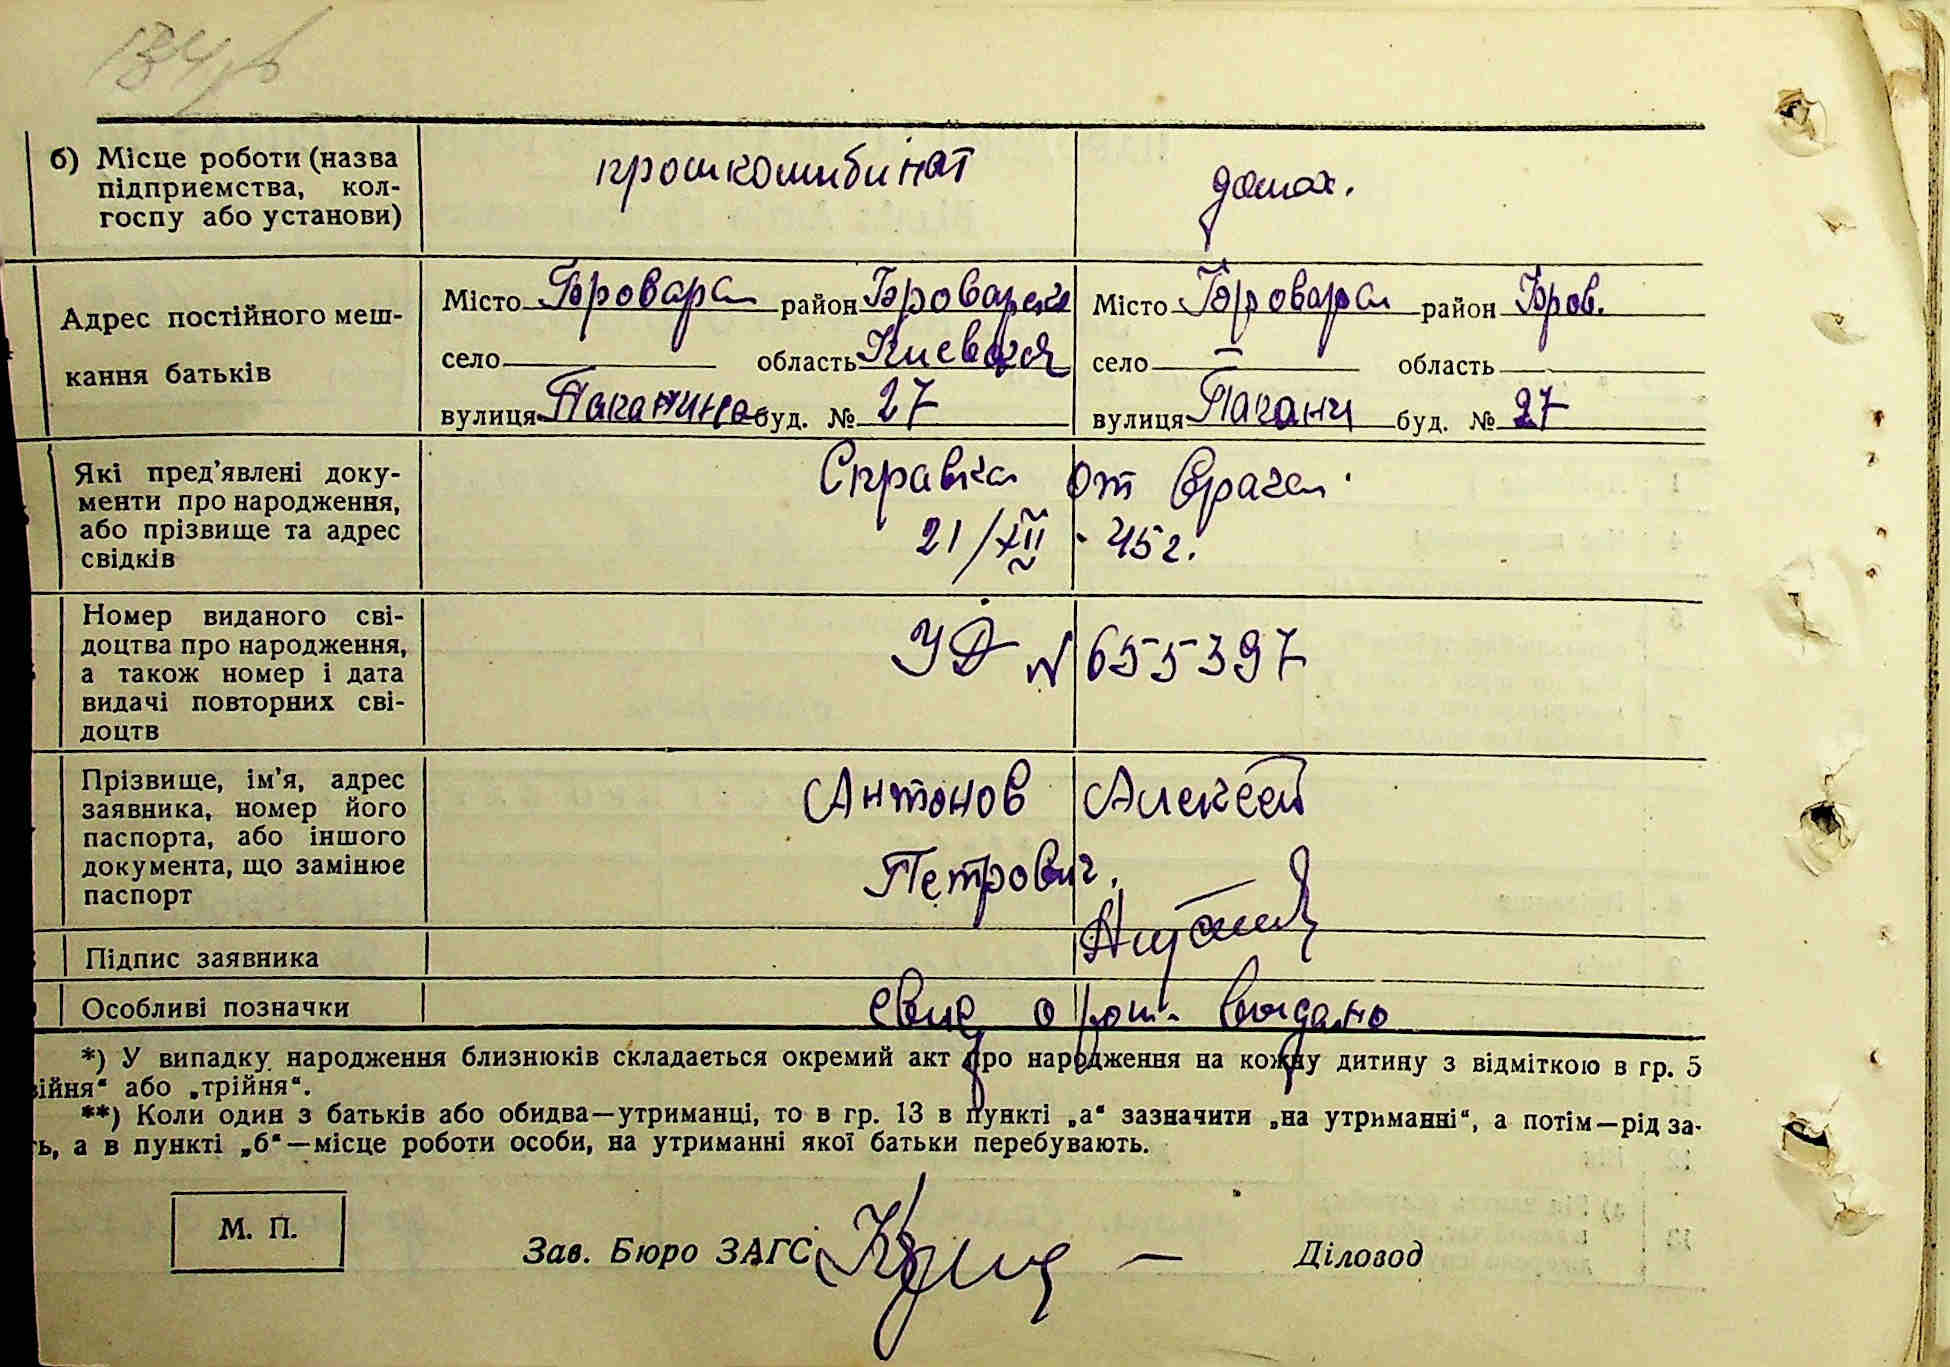 134
б) Місце роботи (назва
підприємства, кол-
госпу або установи)
промкомбинат
домох.
Адрес постійного меш-
кання батьків
Місто Бровара район Броварск
село область Киевская
вулиця Паканина буд. № 27
Місто Бровара район Бров.
село — область
вулиця Пагани буд. № 27
Які пред'явлені доку-
менти про народження,
або прізвище та адрес
свідків
Справка от врача.
21/XII - 45г.
Номер виданого сві-
доцтва про народження,
а також номер і дата
видачі повторних сві-
доцтв
УД N 655397
Прізвище, ім'я, адрес
заявника, номер його
паспорта, або іншого
документа, що замінює
паспорт
Антонов Алексей
Петрович.
Підпис заявника
Особливі позначки
о рож. выдано
*) У випадку народження близнюків складається окремий акт про народження на кожну дитину з відміткою в гр. 5
війня" або „трійня".
**) Коли один з батьків або обидва—утриманці, то в гр. 13 в пункті „а" зазначити „на утриманні", а потім—рід за-
ть, а в пункті „б"—місце роботи особи, на утриманні якої батьки перебувають.
М. П.
Зав. Бюро ЗАГС
Діловод